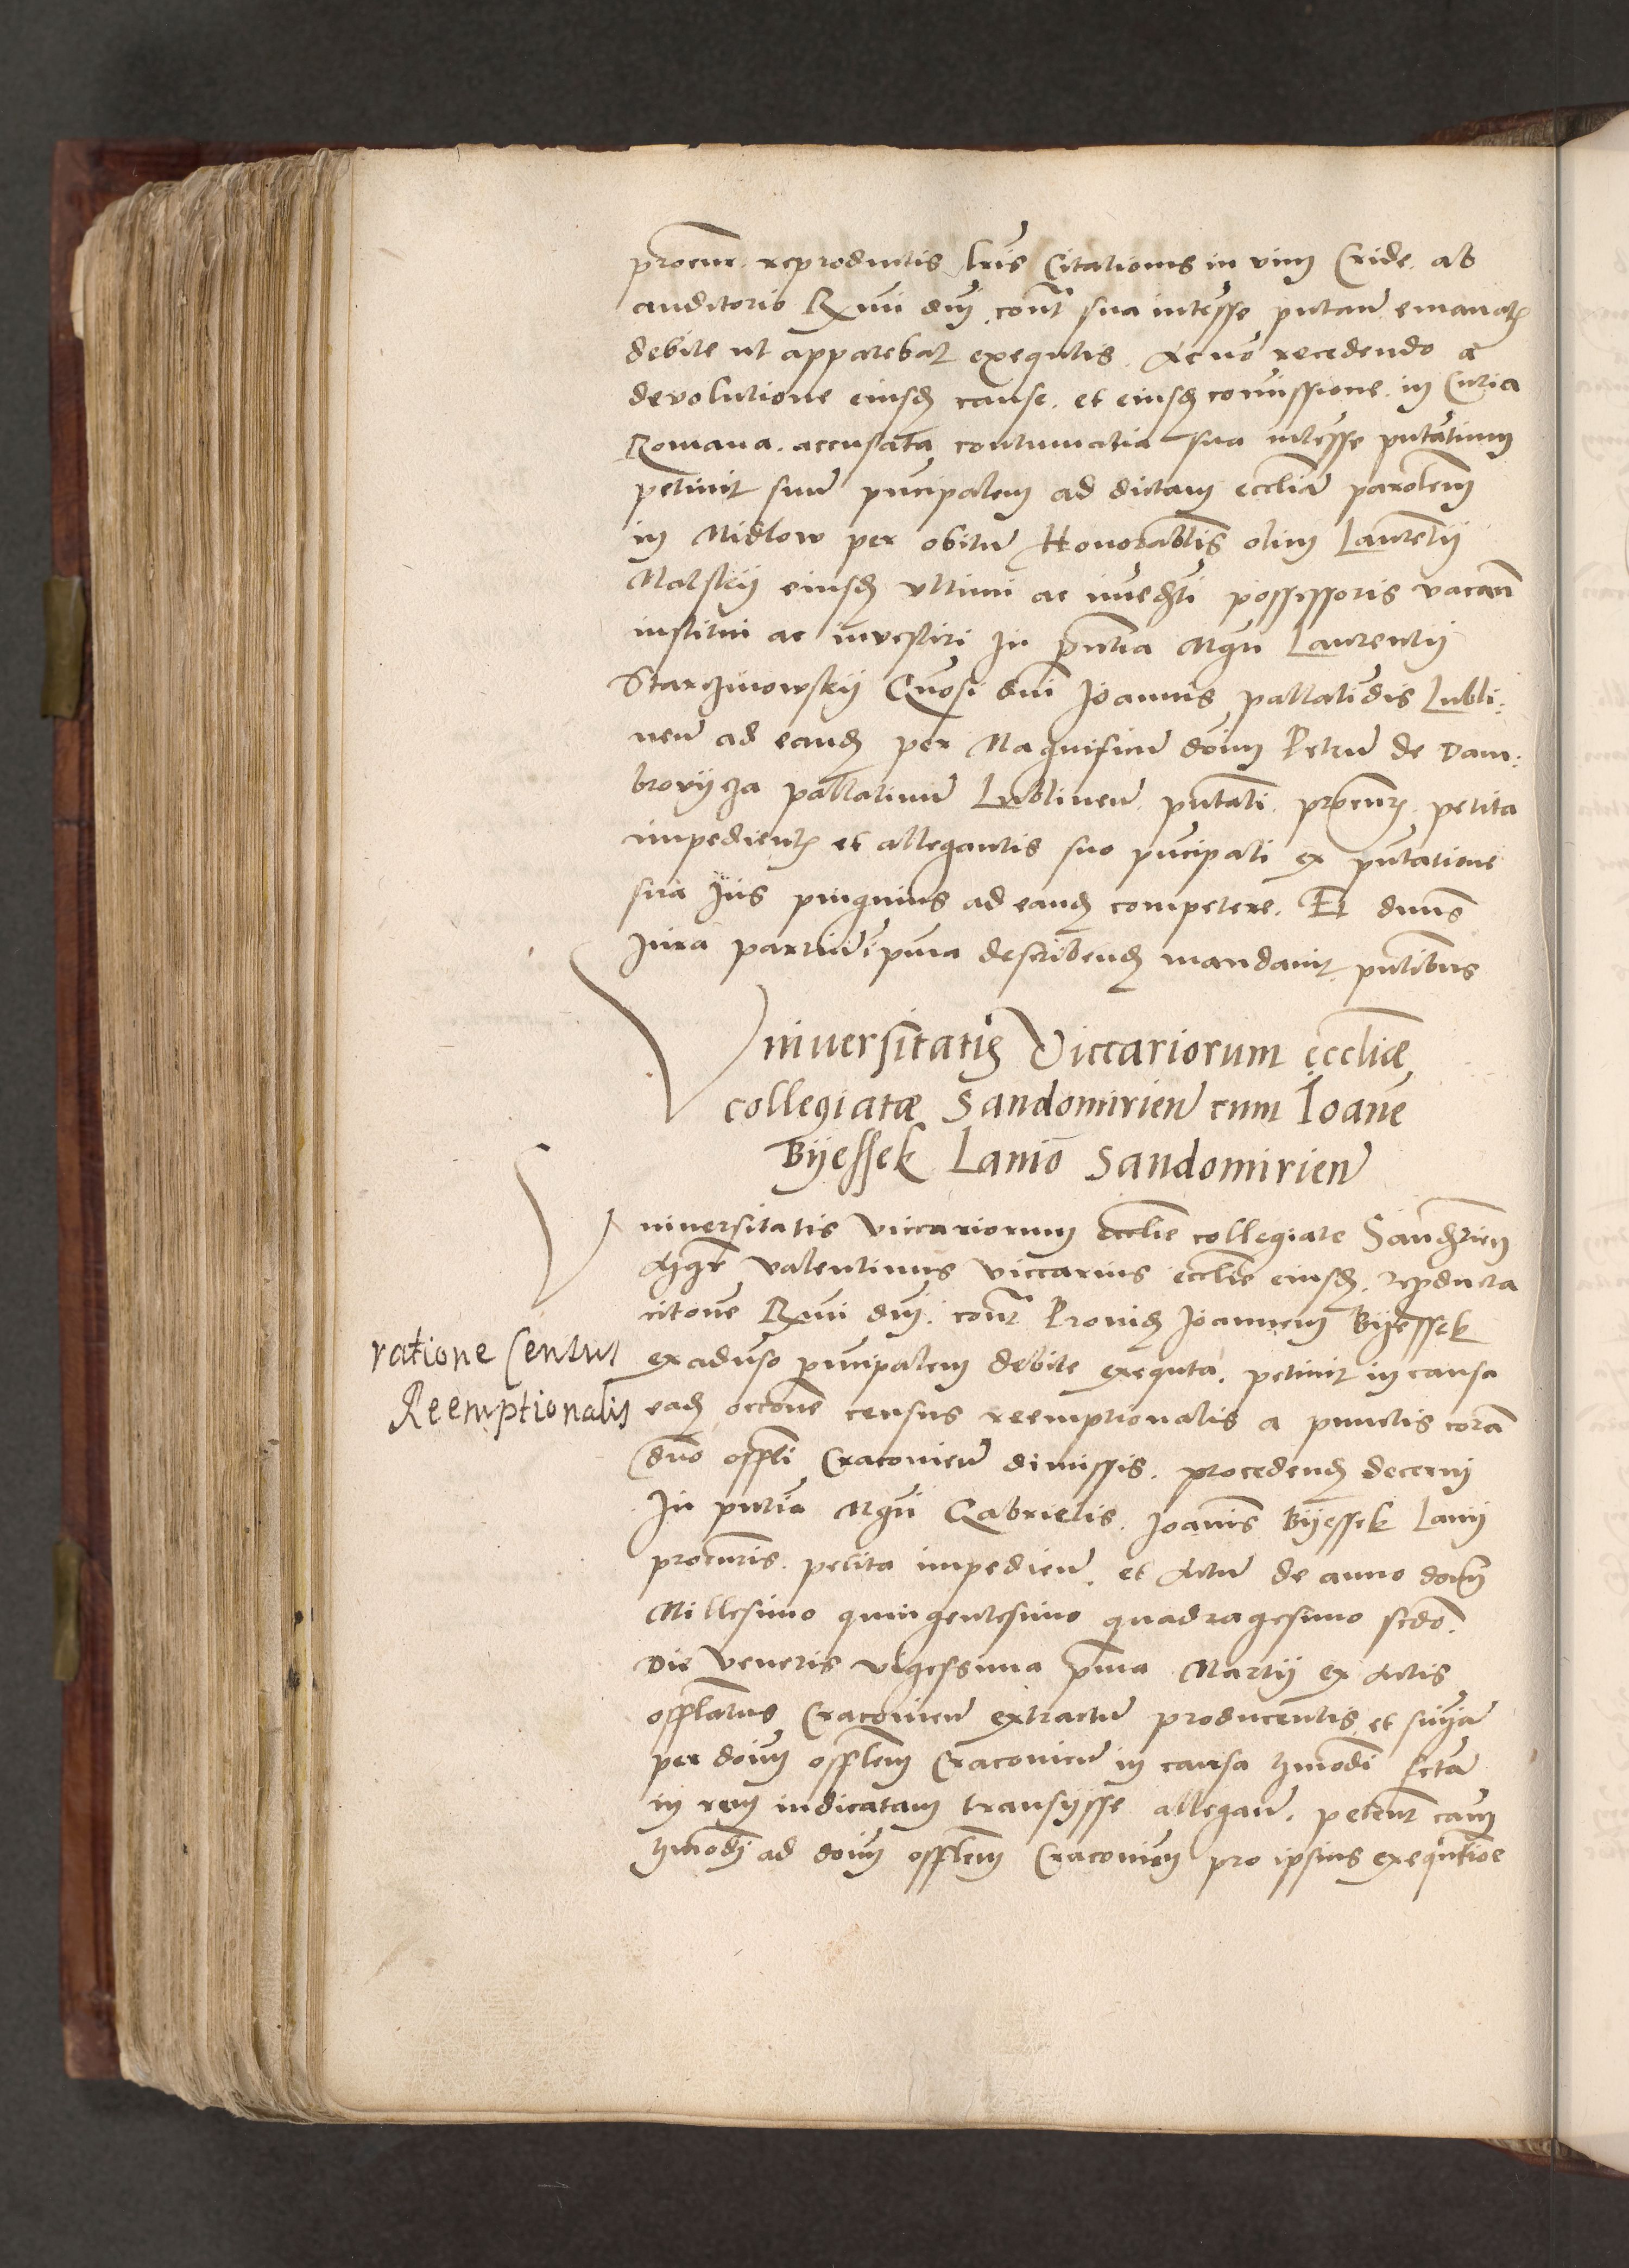 procur. reproductis lris Citationis in vim Cride. ab
auditorio Rmi dni contr sua interesse putan emanat
debite ut apparebat exequtis. Ac no recedendo a
devolutione eiusd cause. et eiusd comissione. in Curia
Romana. accusata contumatia sua interesse putantium
petivit suum pncipalem ad dictam eccliam parolem
in Midlow per obitum Honorablis olim Laurentii
eiusd ultimi ac possessoris vacan
institui ac investiri In pntia Mgri Laurentii
Starzinowskii Gnosi dni Joannis pallatidis Lubli:
nen ad eand per Magnificum dnum Petrum de Dam:
brovycza pallatinum Lublinen pntati. procur petita
impedient et allegantis suo pncipali ex pntatione
sua Jus pinguius ad eand competere. Et dnus
Jura partium describend mandavit pntibus
Vniuersitatis Viccariorum eccliæ
collegiatæ Sandomirien cum Ioane
Byessek Lanio Sandomirien
Vniversitatis viccariorum ecclie collegiate
Valentinus viccarius ecclie eiusd. reproducta
citone Rmi dni. contr Provid Joannem Byessek
ex aduso pncipalem debite exequta. petivit in causa
ratione Census
Reemptionalis
ead occone census reemptionalis a punctis coram
dno offli Cracovien dimissis. procedend decerni
In pntia Mgri Gabrielis. Joannis Byessek Lanii
procuris. petita impedien. et Actum de anno domi
Millesimo quingentesimo quadragesimo scdo.
Die Veneris vigessima pma Martii ex Actis
offlatus Cracovien extractum producentis et sniam
per dnum offlem Cracovien in causa hmodi
in rem iudicatam transiisse allegan. petent cam
hmodi ad dnum offlem Cracovien pro ipsius exequtioe